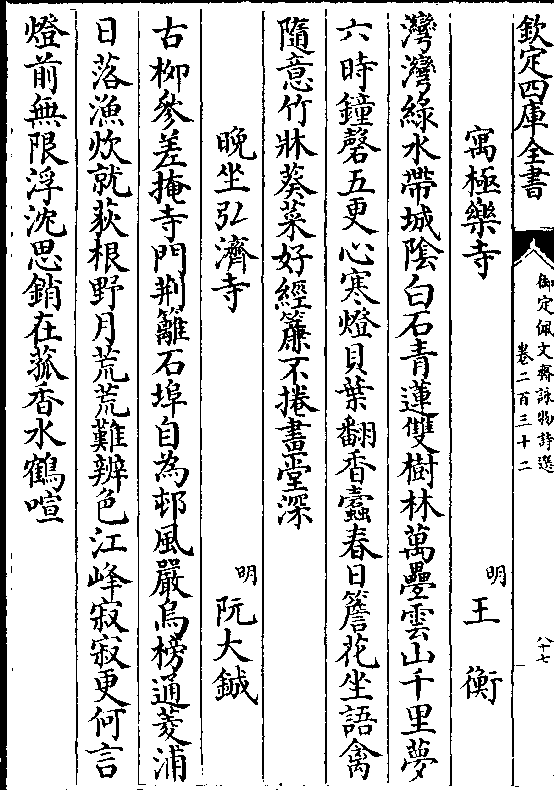 欽定四庫全書
御定佩文齋詠物詩選
卷二百三十二
八十七
寓極樂寺
明 王衡
灣灣綠水帶城陰白石青蓮雙樹林萬疊雲山千里夢
六時鐘磬五更心寒燈貝葉翻香蠧春日簷花坐語禽
隨意竹牀葵菜好經簾不捲畫堂深
晚坐弘濟寺
明 阮大鋮
古柳參差掩寺門荆籬石埠自為邨風嚴烏榜通菱浦
日落漁炊就荻根野月荒荒難辨色江峰寂寂更何言
燈前無限浮沈思銷在菰香水鶴喧